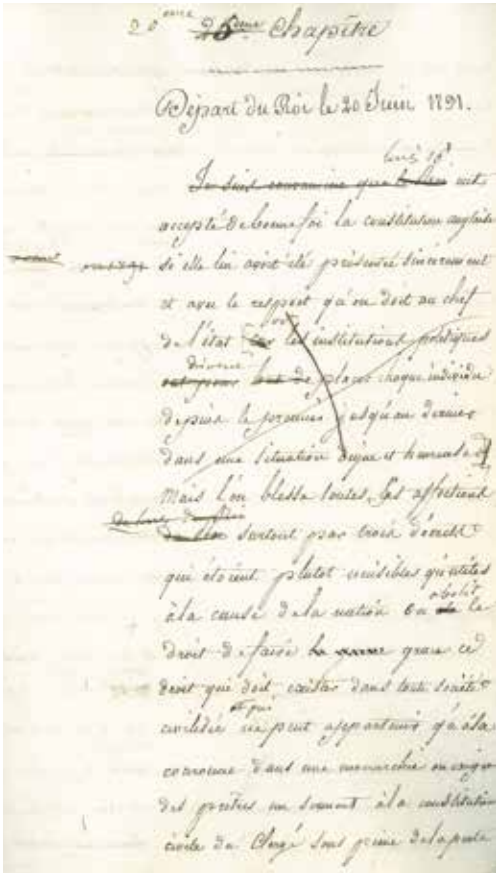 20eme 26eme Chapitre
Départ du Roi le 20 Juin 1791.
Louis 16
Je suis convaincue que le Roi eut
accepté de bonne foi la constitution anglaise
si elle lui avoit été présentée sincèrement
et avec le respect qu'on doit au chef
de l'état les institutions politiques
placer chaque individu
depuis le premier jusqu'au dernier
dans une situation digne et heureuse
Mais l'on blessa toutes ses affections
surtout par trois décrets
qui étoient plutot nuisibles qu'utiles
abolit
à la cause de la nation on le
droit de faire grace ce
droit qui doit exister dans toute société
et qui
civilisée ne peut appartenir qu'à la
couronne dans une monarchie on exigea
des prêtres un serment à la constitution
civile du Clergé sous peine de la perte